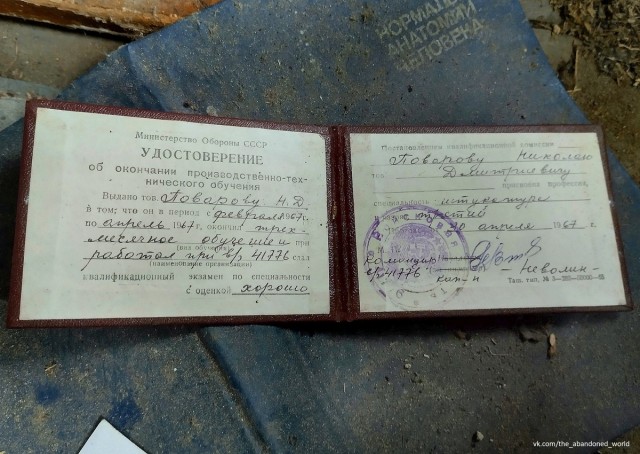 НОРМАЛЬ
АНАТОМИИ
ЧЕЛОВЕКА
Министерство Обороны СССР
УДОСТОВЕРЕНИЕ
об окончании производственно-тех-
нического обучения
Выдано тов. Поварову Н.Д.
в том, что он в период с февраля 1967г.
по апрель 1967 г. окончил трех-
месячное обучение и при
(вид обучения)
работал при в/ч 41776 сдал
(наименование организации)
квалификационный экзамен по специальности
с оценкой хорошо
Постановлением квалификационной комиссии
тов. Поварову Николаю
Дмитриевичу
присвоена профессия,
специальность штукатура
третий
20 апреля 1967 г.
Командир
в/ч 41776
кап-н Неволин
Таш. тип. №
vk.com/the_abandoned_world